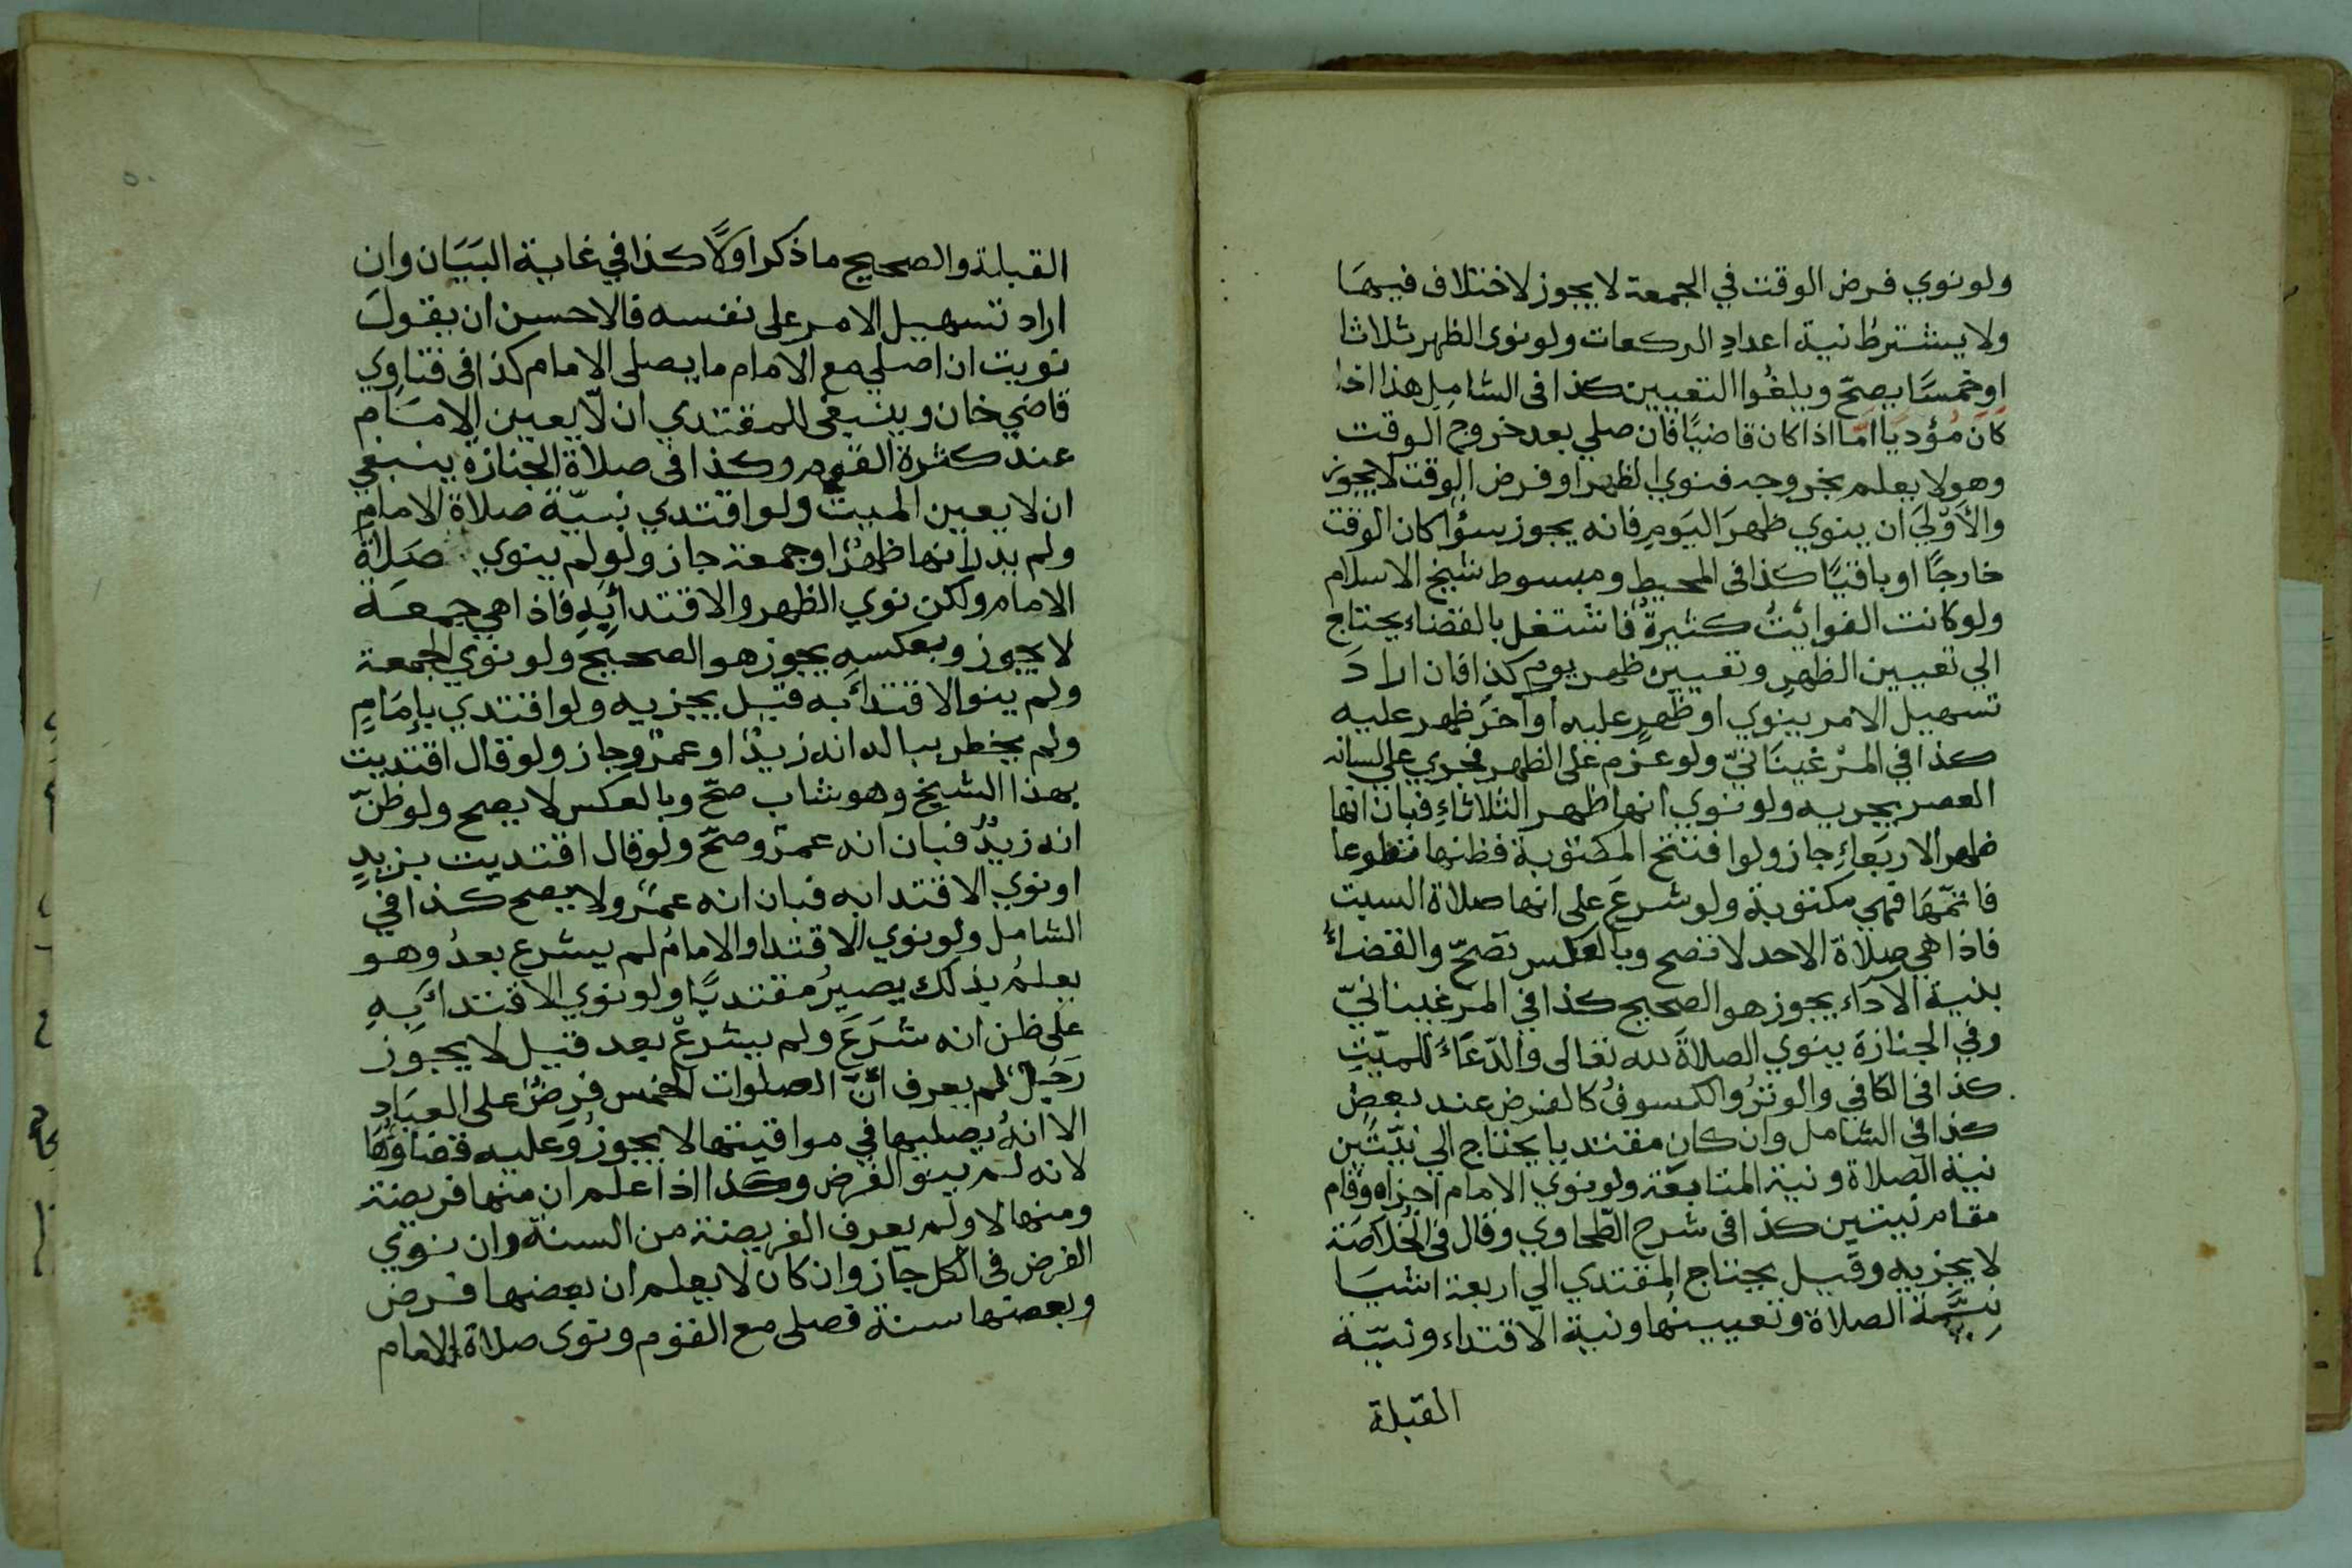 ولو نوي فرض الوقت في الجمعة لا يجوز لاختلاف فيها
ولا يشترط نية اعداد الركعات ولو نوى الظهر ثلاثا
او خمسًا يصحّ ويلغُوا التعيين كذا فى الشامل هذا اذا
كان مؤديًا امّا اذا كان قاضيًا فان صلي بعد خروج الوقت
وهو لا يعلم بخروجه فنوي الظهر او فرض الوقت لا يجوز
والأوْلَي ان ينوي ظهرَ اليَومِ فانه يجوز سؤا كان الوقت
خارجًا او باقيًا كذا فى المحيط ومبسوط شيخ الاسلام
ولو كانت الفوائت كثيرةً فاشتغل بالقضاء يحتاج
الي تعيين الظهر وتعيين ظهر يوم كذا فان اراد
تسهيل الامر ينوي او ظهرٍ عليه او آخر ظهر عليه
كذا في المرْغينَانيّ ولو عزم على الظهر فجري علي لسانه
العصر يجزيه ولو نوي انها ظهر الثلاثاءِ فبان انها
ظهر الاربَعاءِ جاز ولو افتتح المكتوبة فظنها تطوعا
فاتمّهَا فهي مكتوبة ولو شرعَ على انها صلاة السبت
فاذا هي صلاة الاحد لا تصح وبالعكس تصحّ والقضاءُ
بنية الآداء يجوز هو الصحيح كذا في المرغينانيّ
وفي الجنازة ينوي الصلاةَ لله تعالى والدّعَاءَ للميّتِ
كذا فى الكافي والوتْرُ والكسوفُ كالفرض عند بعضٍ
كذا في الشامل وان كان مقتديا يحتاج الي نيّتَين
نية الصلاة ونية المتابعَة ولو نوي الامام اجزاه وقام
مقام نيتين كذا فى شرح الطّحاوي وقال فى الخُلاصَة
لا يجزيه وقيل يحتاج المقتدي الي اربعة اشيَا
نيّة الصلاة وتعيينُها ونية الاقتداء ونيّة
القبلة
القبلة والصحيح ما ذكر اولًا كذا في غاية البَيَان وان
اراد تسهيل الامر على نفسه فالاحسن ان يقول
نويت ان اصلي مع الامام ما يصلى الامام كذا فى فتاوي
قاضي خان وينبغي للمقتدي ان لّا يعين الامَام
عند كثرة القوم وكذا فى صلاة الجنازة ينبغي
ان لا يعين الميت ولو اقتدي بنيّة صلاة الامامِ
ولم يدر انها ظهرٌ او جمعة جاز ولو لم ينوي صَلاةَ
الامام ولكن نوي الظهر والاقتدائَبِه فاذا هي جمعَة
لا يجوز وبعكسِه يجوز هو الصحيح ولو نوي الجمعة
ولم ينو الاقتدأَ به قيل يجزيه ولو اقتدي بإمَامٍ
ولم يخطر بباله انه زيدٌ او عمرٌو جاز ولو قال اقتديت
بهذا الشيخ وهو شاب صحّ وبالعكس لا يصح ولو ظنّ
انه زيدٌ فبان انه عمرٌو صحّ ولو قال اقتديت بزيدٍ
او نوي الاقتدا به فبان انه عمرٌو لا يصح كذا في
الشامل ولو نوي الاقتدا والامامُ لم يشرع بعدُ وهو
يعلمُ بذلك يصيرُ مقتديًا ولو نوي الاقتدأَ بِهِ
على ظن انه شرَعَ ولم يشرعْ بعد قيل لا يجوز
رَجلٌ لم يعرف انّ الصلوات الخمس فرضٌ على العبَادِ
الا انهُ يصليها في مواقيتها لا يجوزُ وعليه قضاؤُهَا
لانه لم ينو الفرض وكذا اذا علم ان منها فريضة
ومنها لا ولم يعرف الفريضة من السنة وان نوي
الفرض فى الكل جاز وان كان لا يعلم ان بعضها فرض
وبعضها سنة فصلى مع القوم ونوى صلاة الامام